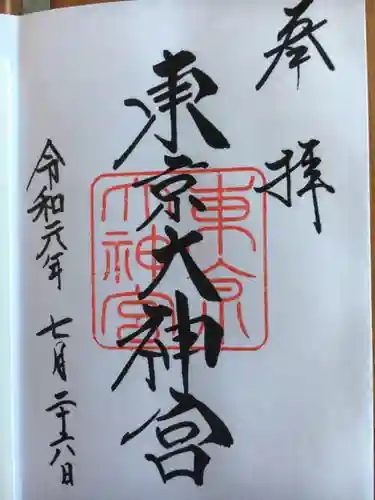 奉拝
東京大神宮
東京大神宮
令和元年 七月二十六日